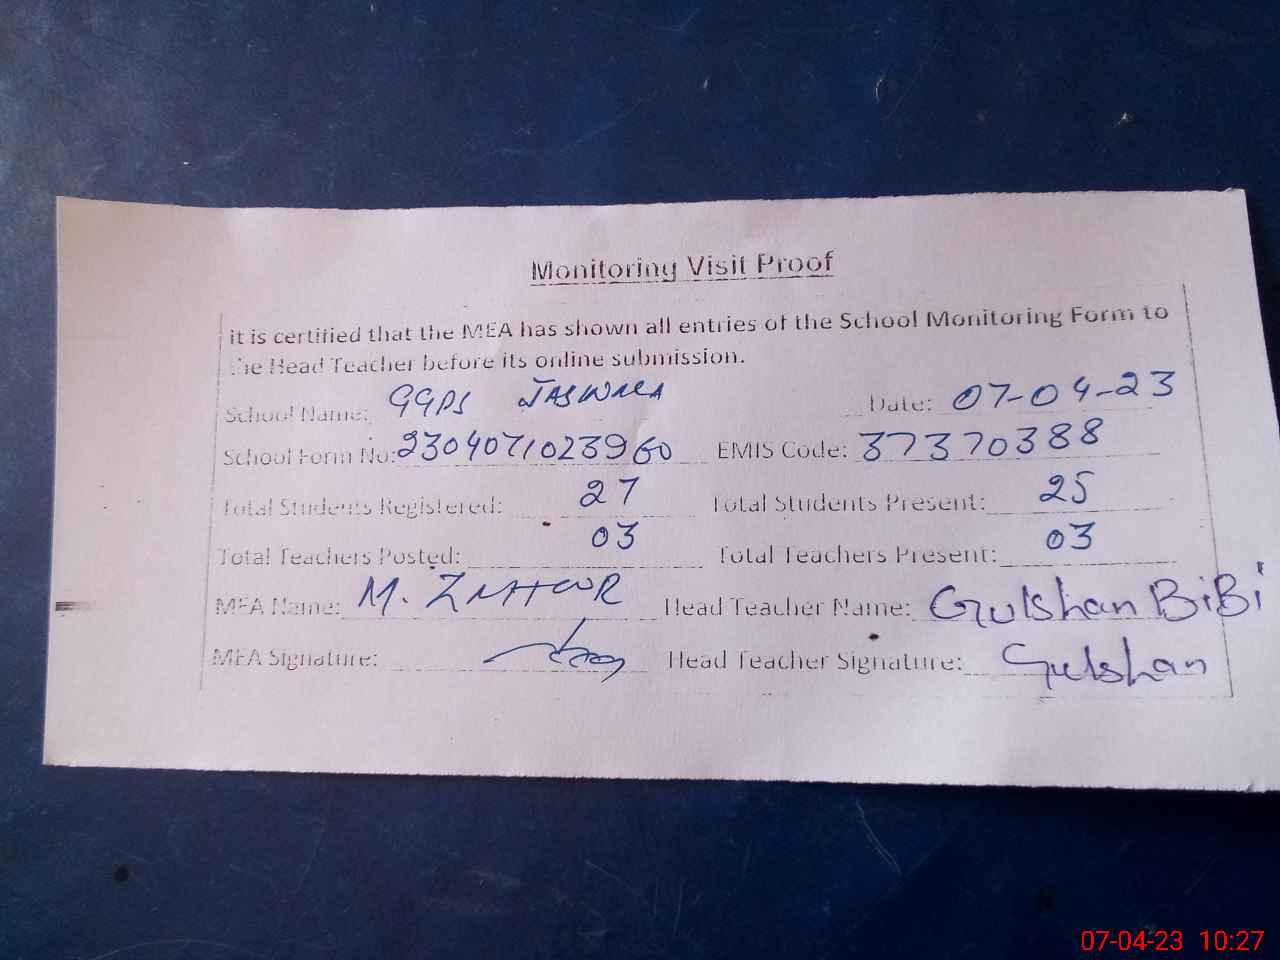 Monitoring Visit Proof
it is certified that the MEA has shown all entries of the School Monitoring Form to
the Head Teacher before its online submission.
School Name: GGPS JASWALA Date: 07-04-23
School Form No: 2304071023960 EMIS Code: 37370388
Total Students Registered: 27 Total Students Present: 25
Total Teachers Posted: 03 Total Teachers Present: 03
MEA Name: M. ZAHOOR Head Teacher Name: Gulshan BiBi
MEA Signature: Head Teacher Signature: Gulshan
07-04-23 10:27